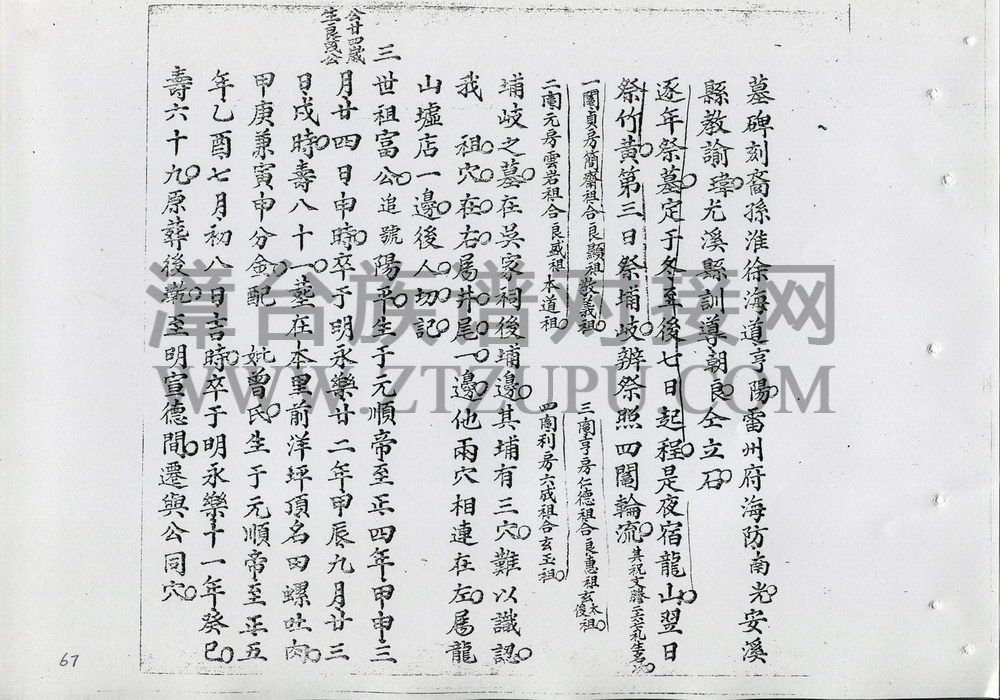 墓碑刻裔孫淮徐海道亨陽雷州府海防南光安溪
縣教諭瑋尤溪縣訓導朝良仝立石
逐年祭墓定于冬至後七日起程是夜宿龍山翌日
祭竹黃第三日祭埔岐辨祭照四閫輪流
一閫貞房簡齋祖合良顯祖敦義祖 三閫亨房仁德祖合良惠祖
二閫元房雲岩祖合良盛祖本道祖 四閫利房六成祖合玄玉祖
埔岐之墓在吳家祠後埔邊其埔有三穴難以識認
我 祖穴在右屬井尾一邊他兩穴相連在左屬龍
山墟店一邊後人切記
三世祖富公追號陽平生于元順帝至正四年甲申三
公廿四歲
生良茂公
月廿四日申時卒于明永樂廿二年甲辰九月廿三
日戌時壽八十一葬在本里前洋坪頂名田螺吐肉
甲庚兼寅申分金配 妣曾氏生于元順帝至正五
年乙酉七月初八日吉時卒于明永樂十一年癸巳
壽六十九原葬後壠至明宣德間遷與公同穴
67
漳台族谱对接网
WWW.ZTZUPU.COM